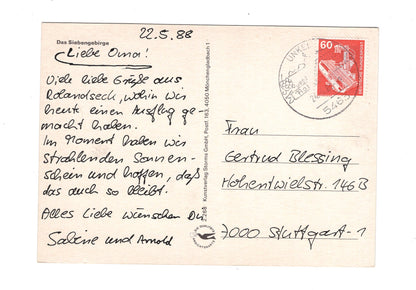 22.5.88
Das Siebengebirge
Liebe Oma!
Viele liebe Grüße aus
Rolandseck, wohin wir
heute einen Ausflug ge-
macht haben.
Im Moment haben wir
strahlenden Sonnen-
schein und hoffen, daß
das auch so bleibt.
Alles Liebe wünschen Dir
Sabine und Arnold
Kunstverlag Storms GmbH, Postf. 163, 4050 Mönchengladbach 1
UNKEL
60
DEUTSCHE BUNDESPOST
Frau
Gertrud Blessing
Hohentwielstr. 146B
7000 Stuttgart-1